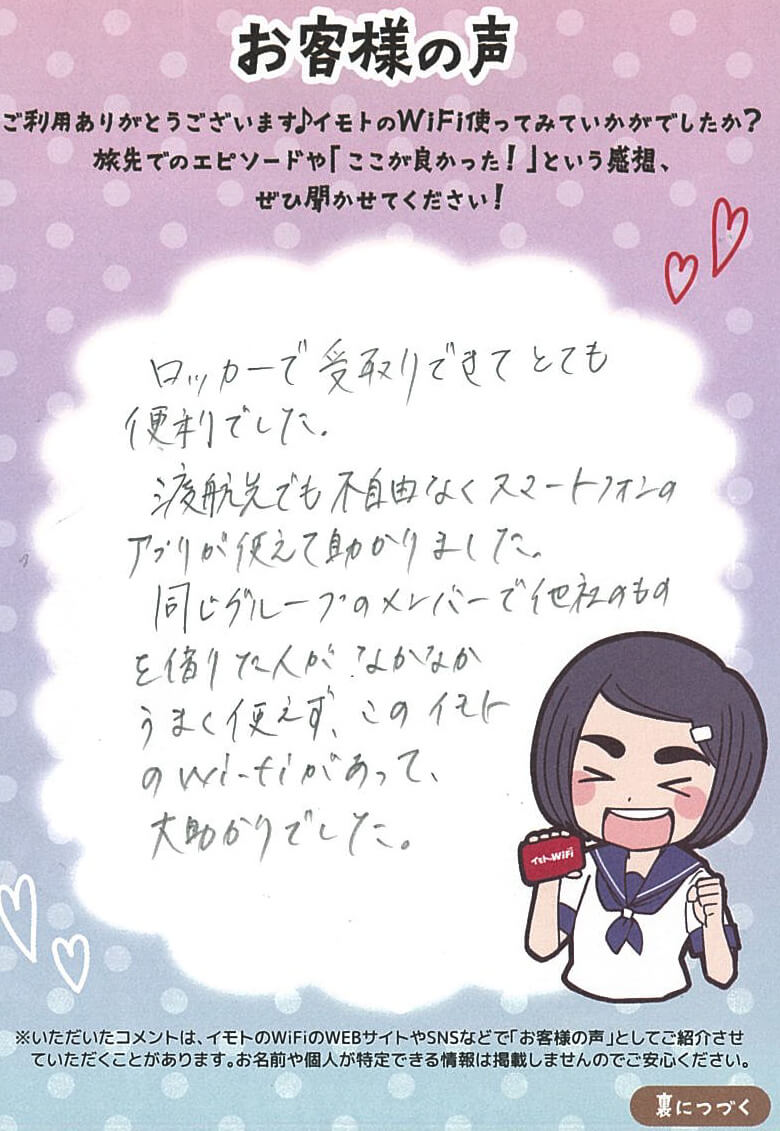 お客様の声
ご利用ありがとうございます♪イモトのWiFi使ってみていかがでしたか?
旅先でのエピソードや「ここが良かった!」という感想、
ぜひ聞かせてください!
ロッカーで受取りできてとても
便利でした。
渡航先でも不自由なくスマートフォンの
アプリが使えて助かりました。
同じグループのメンバーで他社のもの
を借りた人がなかなか
うまく使えず、このイモト
のwi-fiがあって、
大助かりでした。
イモトのWiFi
※いただいたコメントは、イモトのWiFiのWEBサイトやSNSなどで「お客様の声」としてご紹介させ
ていただくことがあります。お名前や個人が特定できる情報は掲載しませんのでご安心ください。
裏につづく